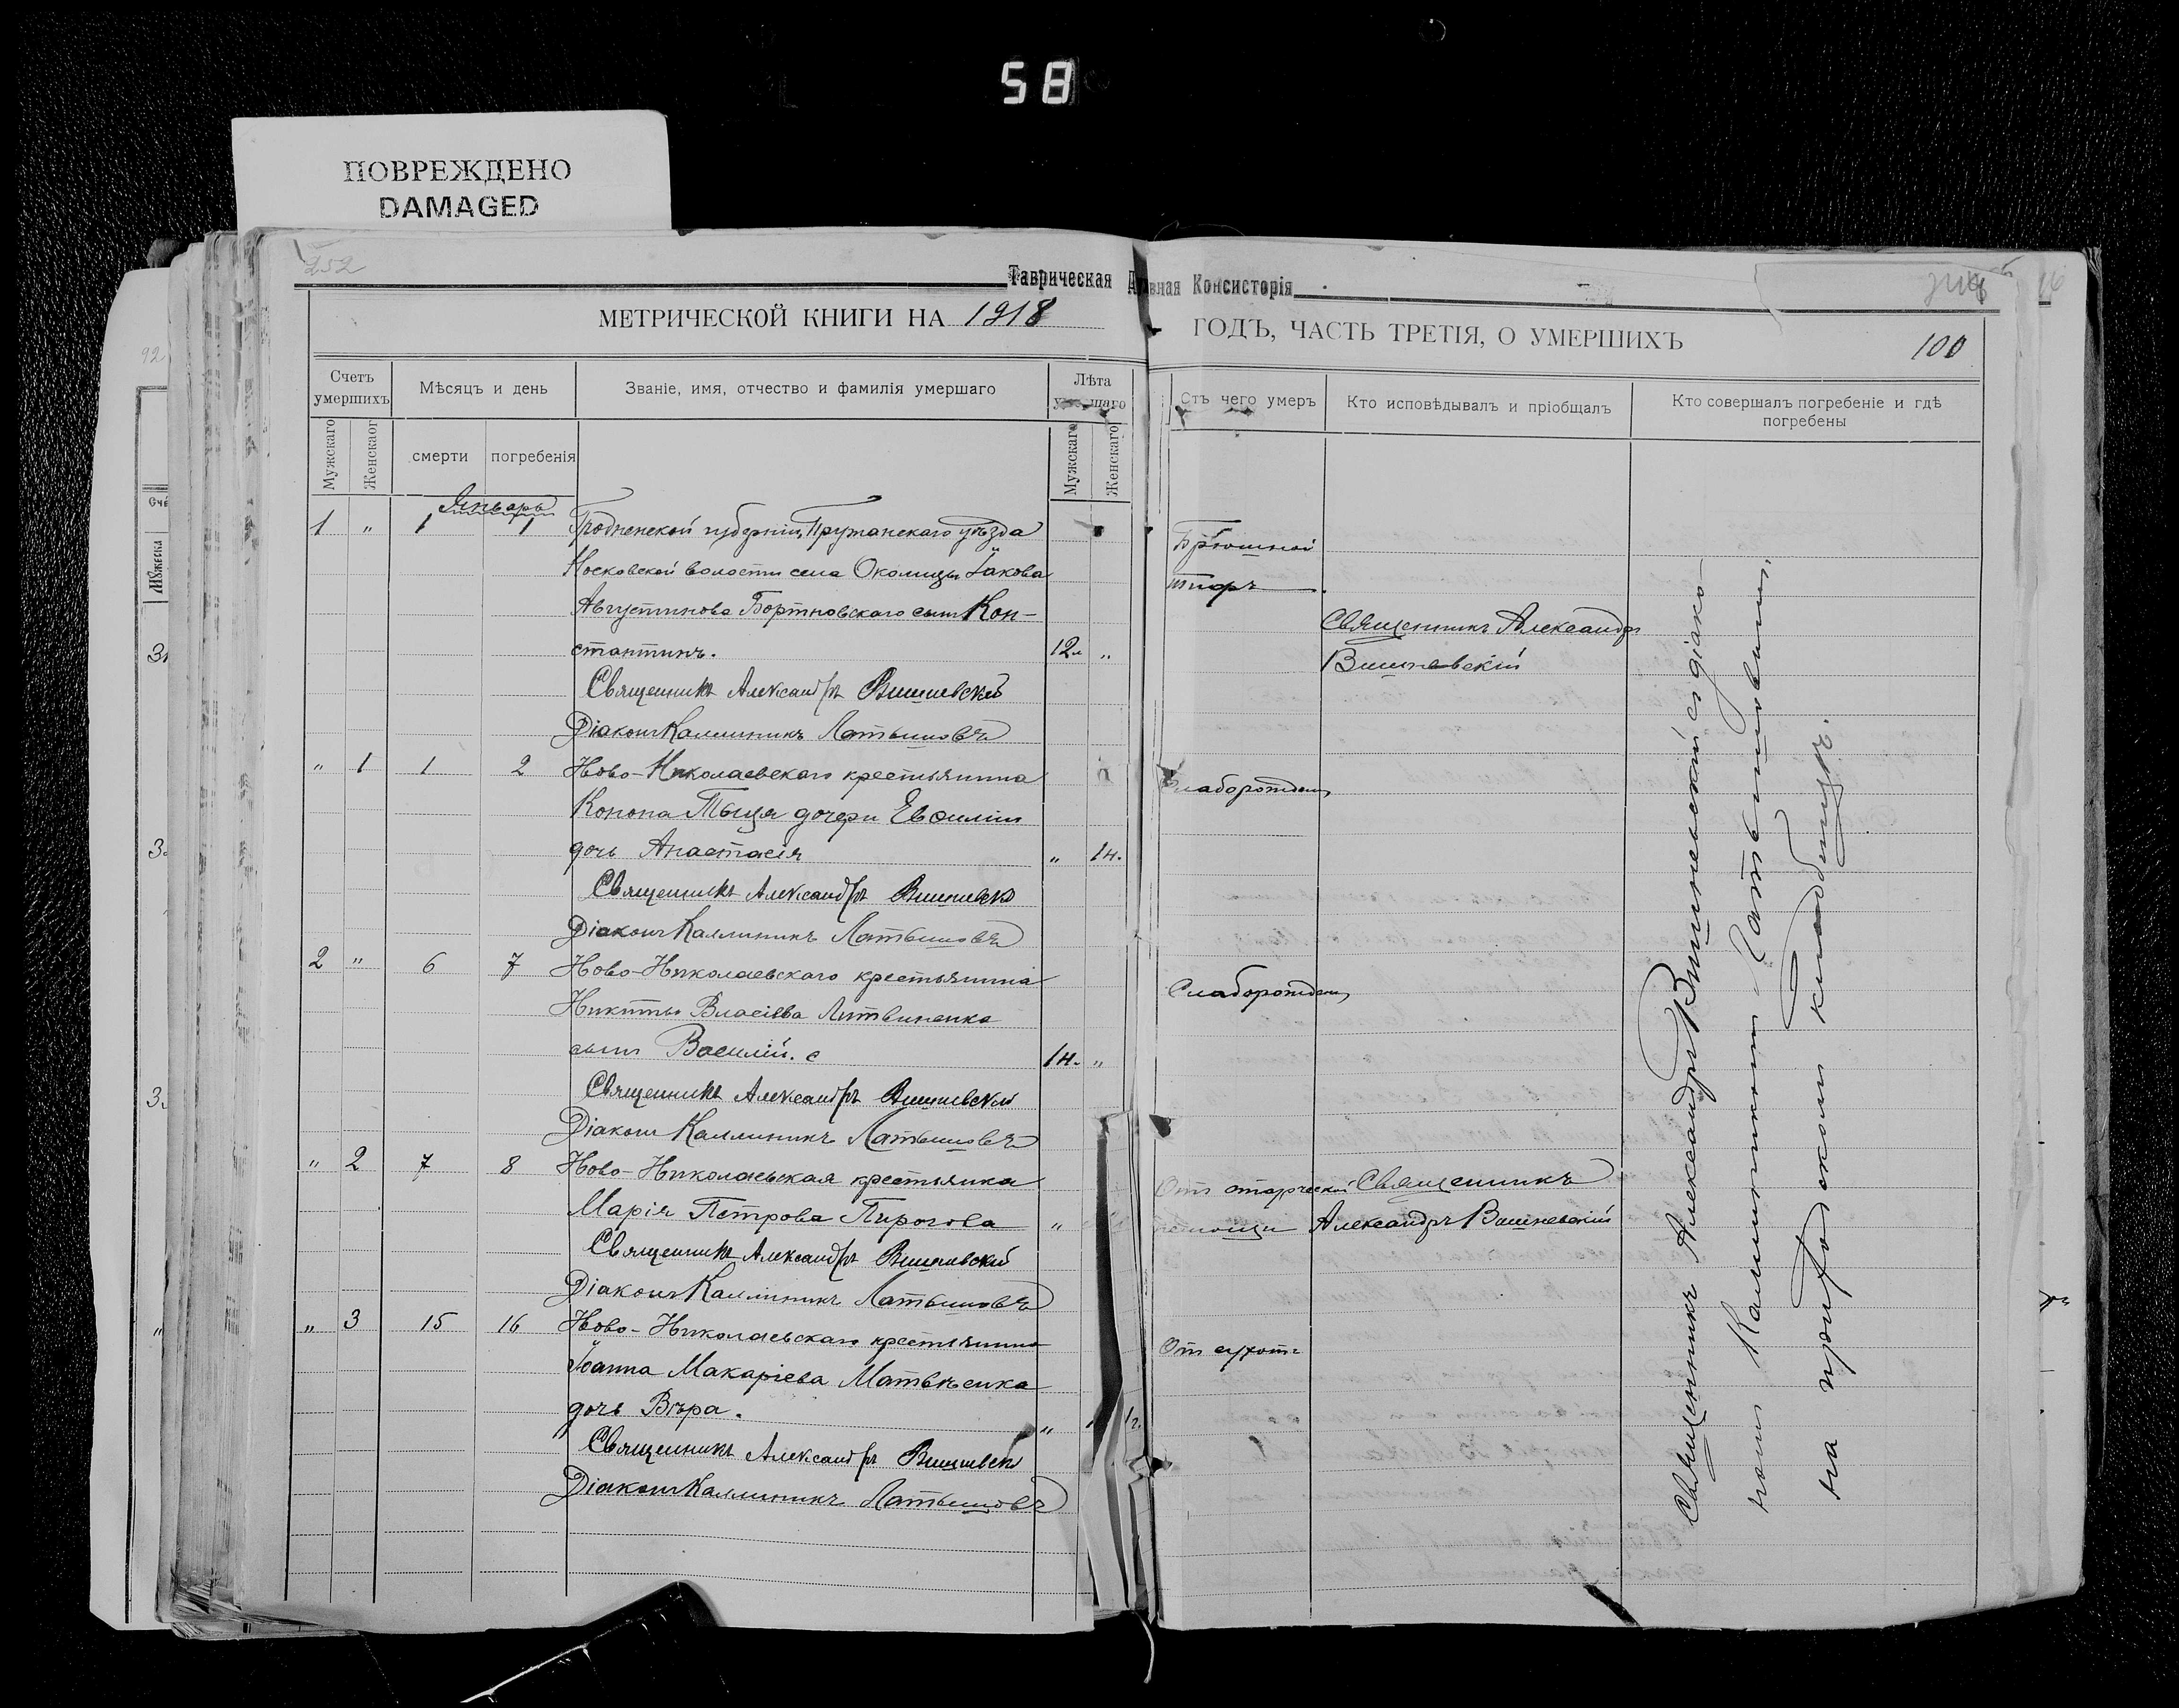 58
ПОВРЕЖДЕНО
DAMAGED
252
Таврическая Консисторія
МЕТРИЧЕСКОЙ КНИГИ НА 1918
ГОДЪ, ЧАСТЬ ТРЕТІЯ, О УМЕРШИХЪ
100
Счетъ умершихъ
Мѣсяцъ и день
Званіе, имя, отчество и фамилія умершаго
Лѣта
Отъ чего умеръ
Кто исповѣдывалъ и пріобщалъ
Кто совершалъ погребеніе и гдѣ погребены
Мужскаго
Женскаог
смерти
погребенія
Мужскаго
Женскаго
Январь
1 " 1 1 Гродненской губерніи Пружанскаго уѣзда
Носковской волости села Околицы Іакова
Августинова Бортновскаго сынъ Кон-
стантинъ. 12л "
Священникъ Александръ Вишневскій
Діаконъ Каллиникъ Латышовъ
Брюшной
тифъ
Священникъ Александръ
Вишневскій
" 1 1 2 Ново-Николаевскаго крестьянина
Конона дочери Евфиміи
дочь Анастасія " 1н.
Священникъ Александръ Вишневск
Діаконъ Каллиникъ Латышовъ
Слаборожден
2 " 6 7 Ново-Николаевскаго крестьянина
Никиты Власіева Литвиненка
сынъ Василій. 1н. "
Священникъ Александръ Вишневскій
Діаконъ Каллиникъ Латышовъ
Слаборожден
" 2 7 8 Ново-Николаевская крестьянка
Марія Петрова Пирогова "
Священникъ Александръ Вишневскій
Діаконъ Каллиникъ Латышовъ
Отъ старческой
немощи
Священникъ
Александръ Вишневскій
" 3 15 16 Ново-Николаевскаго крестьянина
Іоанна Макаріева Матвѣенка
дочь Вѣра. " 1г.
Священникъ Александръ Вишневск
Діаконъ Каллиникъ Латышовъ
Отъ сухотъ
Священникъ Александръ Вишневскій съ діако-
номъ Каллиникомъ Латышовымъ,
на приходскомъ кладбищѣ.